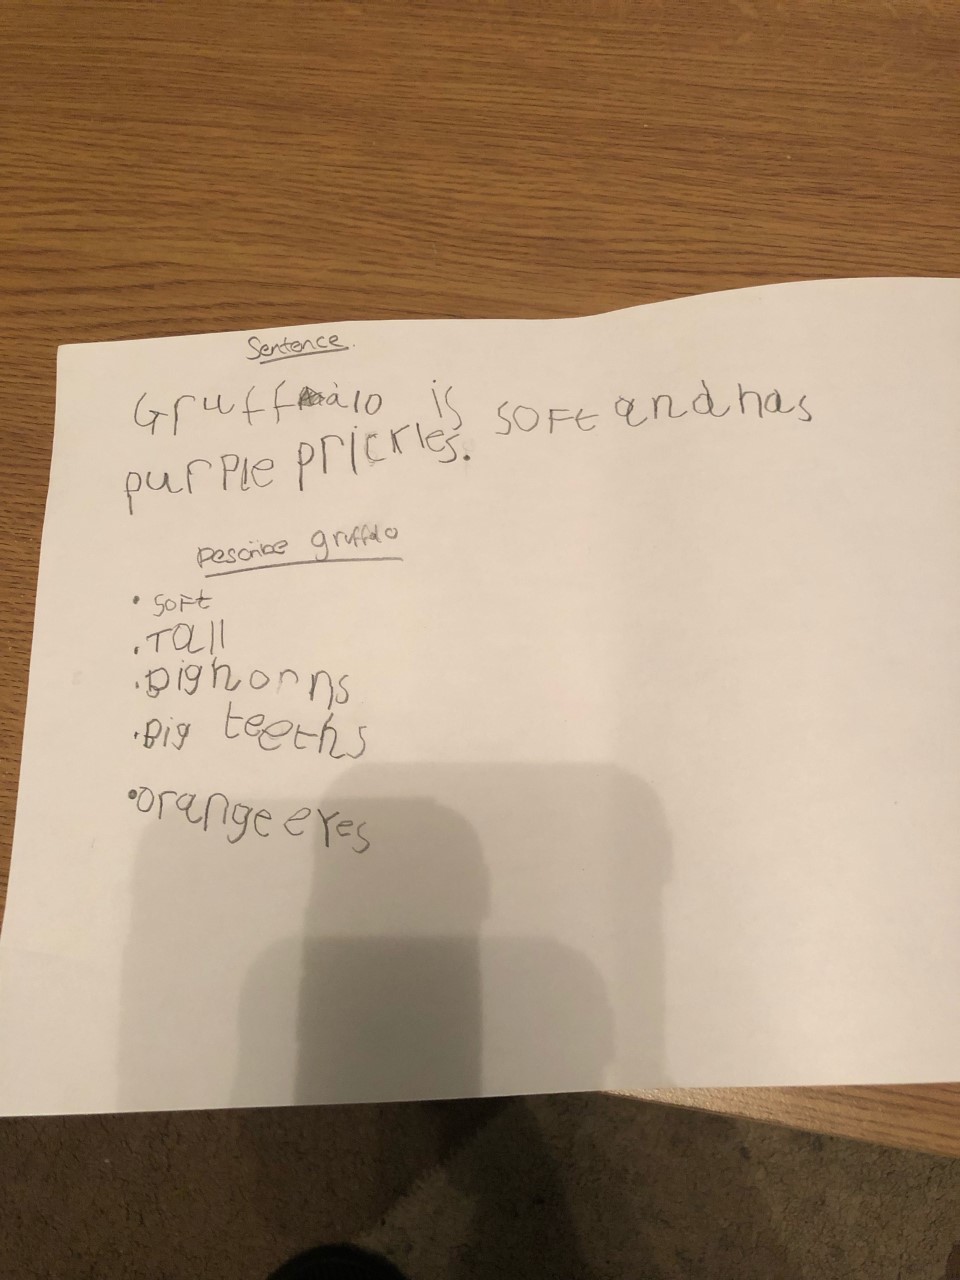 Sentence.
Gruffalo is soft and has
purple prickles.
Describe gruffalo
• soft
• Tall
• Big horns
• Big teeths
• orange eyes